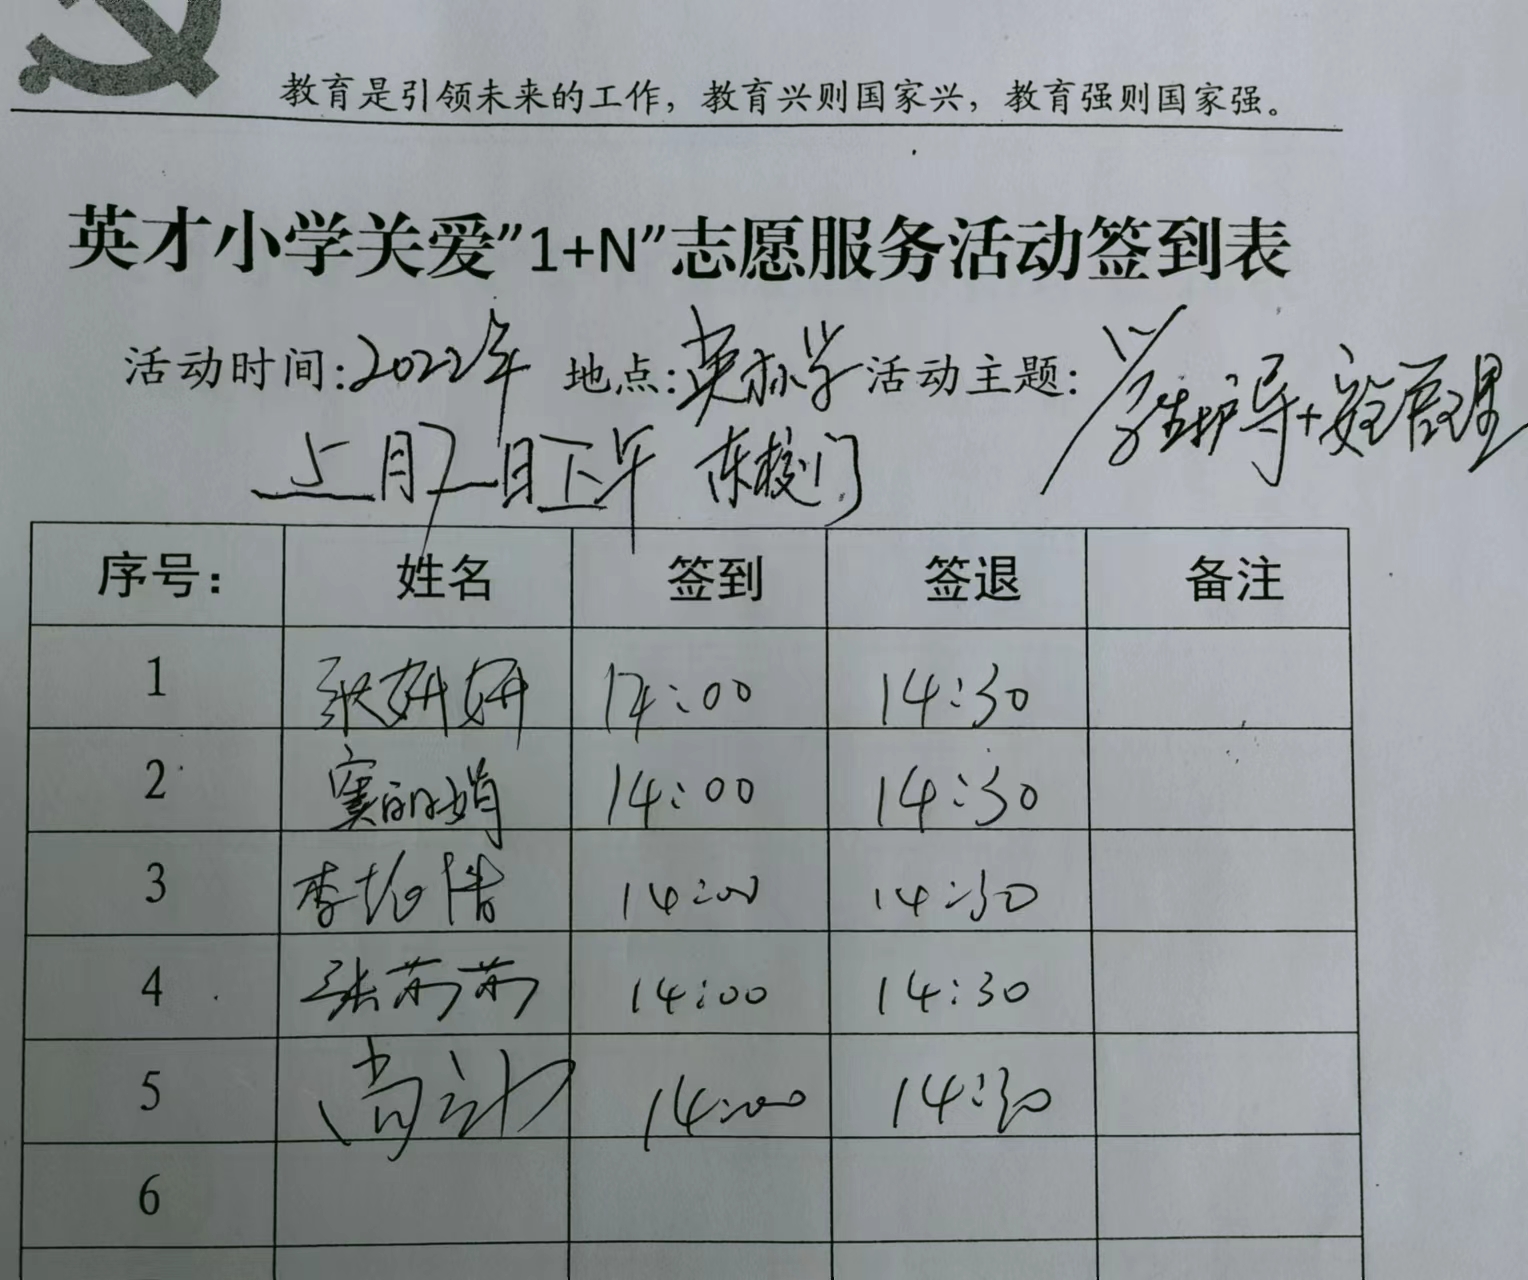 教育是引领未来的工作，教育兴则国家兴，教育强则国家强。
英才小学关爱”1+N”志愿服务活动签到表
活动时间:2022年 地点:英才小学 活动主题:
5月7日下午 东校门 学生护导+安全管理
序号: 姓名 签到 签退 备注
1 张妍妍 14:00 14:30
2 窦丽娟 14:00 14:30
3 李 14:00 14:30
4 张莉莉 14:00 14:30
5 尚 14:00 14:30
6